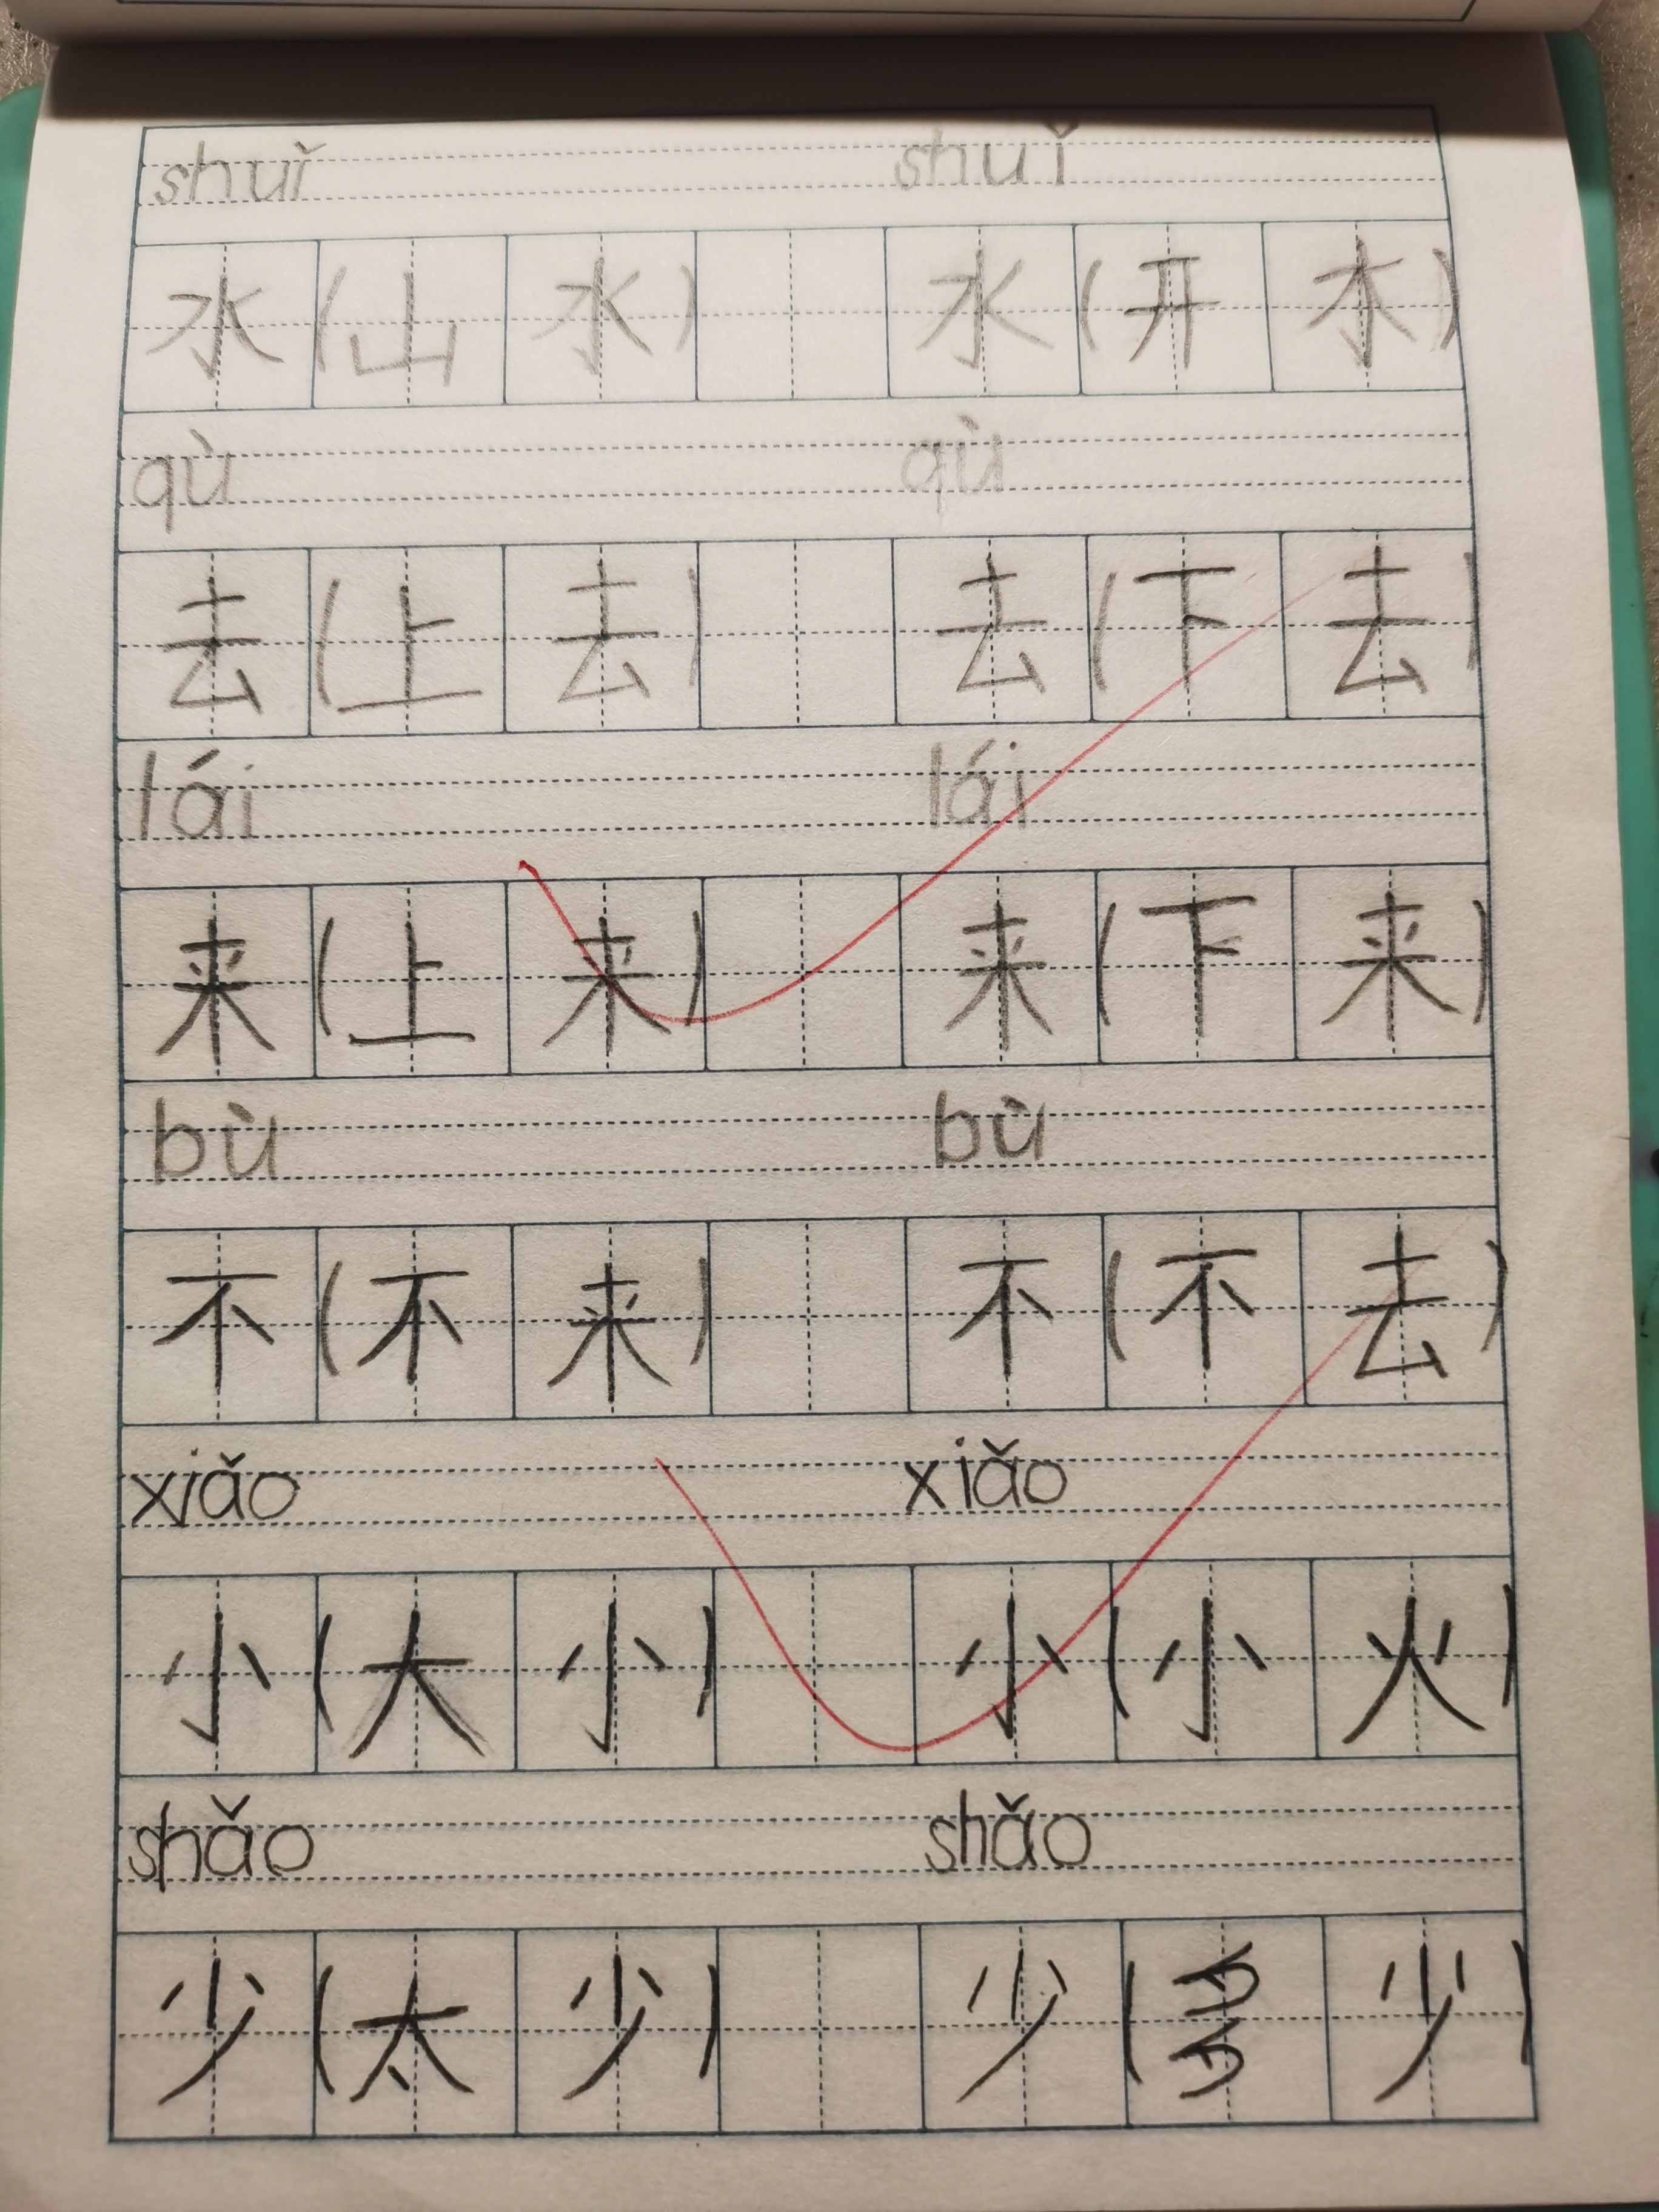 shuǐ shuǐ
水(山水) 水(开水)
qù qù
去(上去) 去(下去)
lái lái
来(上来) 来(下来)
bù bù
不(不来) 不(不去)
xiǎo xiǎo
小(大小) 小(小火)
shǎo shǎo
少(太少) 少(多少)